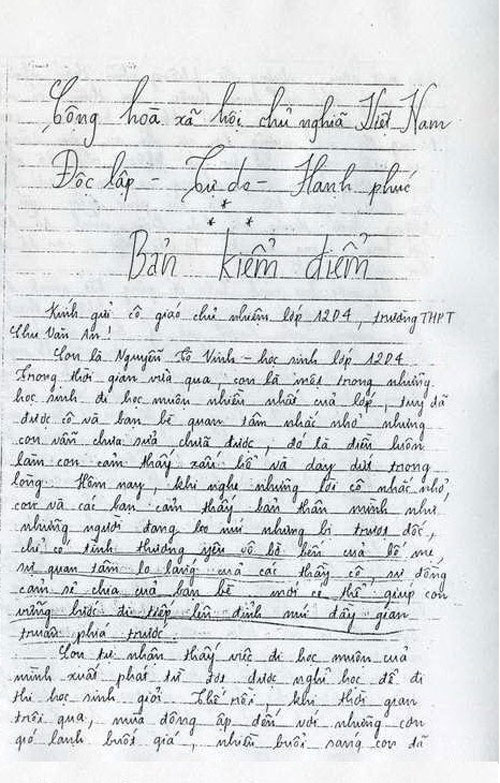 Cộng hoà xã hội chủ nghiã Việt Nam
Độc lập - Tự do - Hanh phúc
*
* *
Bản kiểm điểm
Kính gửi cô giáo chủ nhiệm lớp 12D4, trường THPT
Chu Văn An!
Con là Nguyễn Tô Vinh - học sinh lớp 12D4
Trong thời gian vừa qua, con là một trong những
học sinh đi học muộn nhiều nhất của lớp, tuy đã
được cô và bạn bè quan tâm nhắc nhở nhưng
con vẫn chưa sửa chữa được, đó là điều luôn
làm con cảm thấy xấu hổ và day dứt trong
lòng. Hôm nay, khi nghe những lời cô nhắc nhở,
con và các bạn cảm thấy bản thân mình như
những người đang leo núi nhưng bị trượt dốc,
chỉ có tình thương yêu vô bờ bến của bố mẹ,
sự quan tâm lo lắng của các thầy cô, sự đồng
cảm sẻ chia của bạn bè mới có thể giúp con
vững bước đi tiếp lên đỉnh núi đầy gian
truân phía trước.
Con tự nhận thấy việc đi học muộn của
mình xuất phát từ đợt được nghỉ học để đi
thi học sinh giỏi. Thế rồi, khi thời gian
trôi qua, mùa đông ập đến với những cơn
gió lạnh buốt giá, nhiều buổi sáng con đã